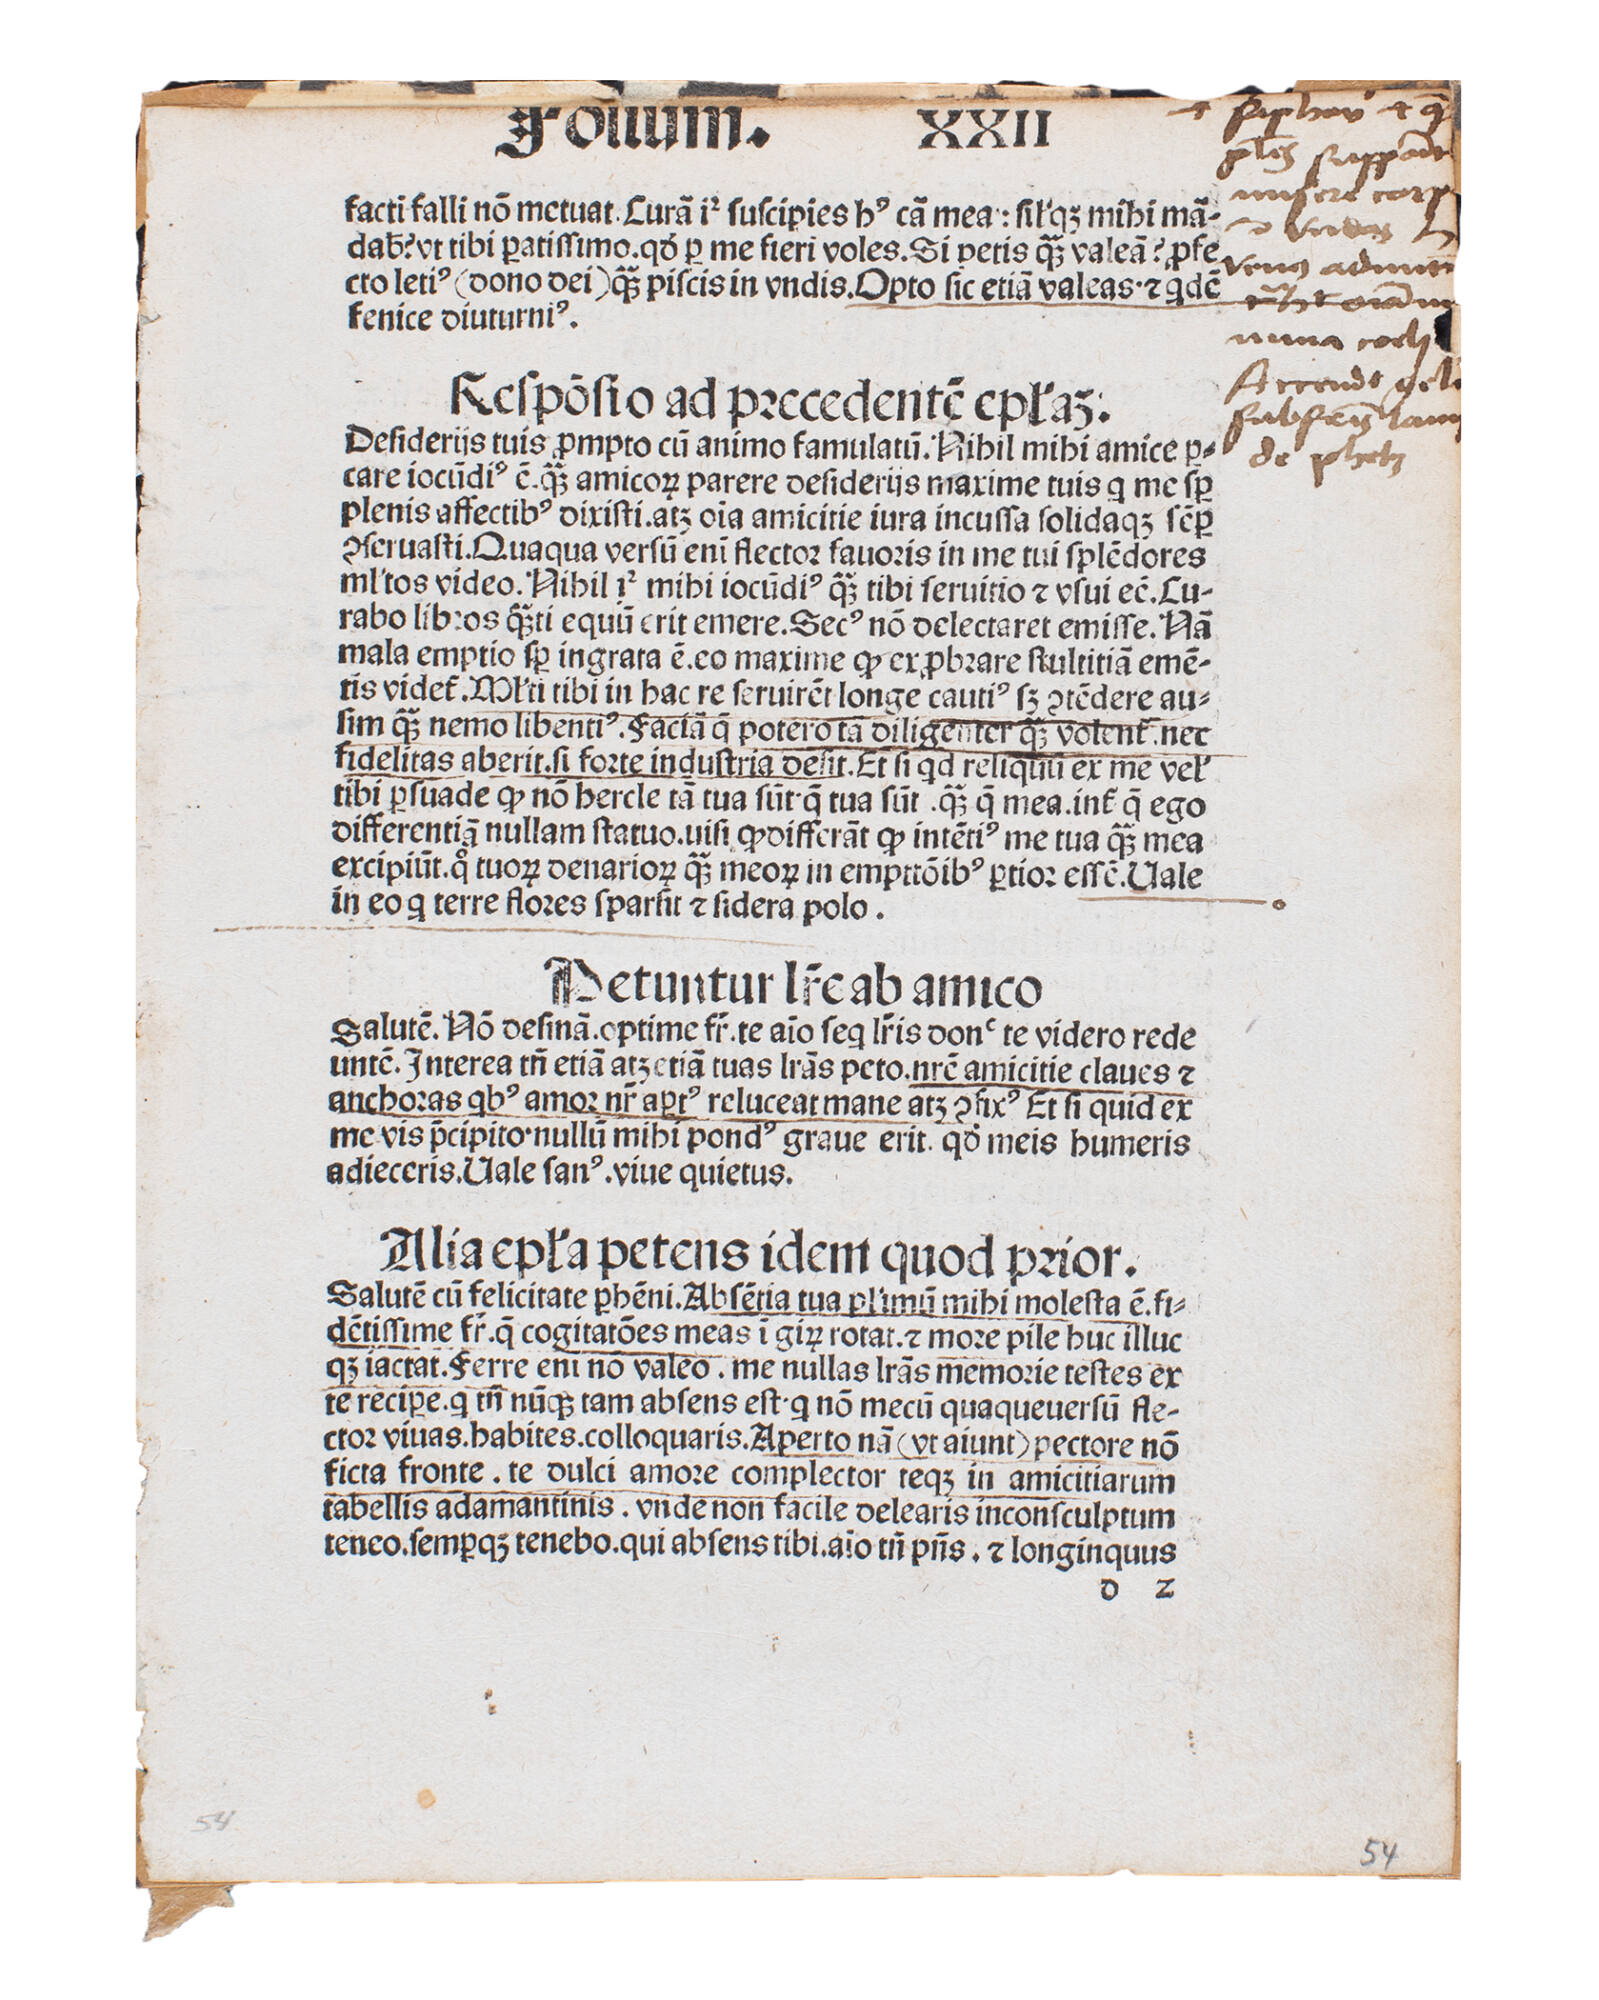 Folium. XXII
facti falli nō metuat. Curā iꝰ suscipies hꝰ cā mea: silꝰqꝫ mihi mā-
dab̄? vt tibi ꝑatissimo. qđ ꝑ me fieri voles. Si petis qꝫ̄ valeā? ꝓfe
cto letiꝰ (dono dei) qꝫ̄ piscis in vndis. Opto sic etiā valeas. ⁊ qdē
fenice diuturniꝰ.
Respōsio ad precedentē epl'aꝫ:
Desiderijs tuis ꝓmpto cū animo famulatū. Nihil mihi amice p̱-
care iocūdiꝰ ē. qꝫ̄ amicoꝝ parere desiderijs maxime tuis q me sꝑ
plenis affectibꝰ dixisti. atꝫ oīa amicitie iura incussa solidaqꝫ sēꝑ
ꝯseruasti. Quaqua versū enī flector fauoris in me tui splēdores
ml'tos video. Nihil iꝰ mihi iocūdiꝰ qꝫ̄ tibi seruitio ⁊ vsui eē. Cu-
rabo libros qꝫ̄ti equū erit emere. Secꝰ nō delectaret emisse. Nā
mala emptio sꝑ ingrata ē. eo maxime ꝙ exꝓbrare stultitiā emē-
tis videt̄. Ml'ti tibi in hac re seruirēt longe cautiꝰ sꝫ ꝯtēdere au-
sim qꝫ̄ nemo libentiꝰ. Faciā q̄ potero tā diligenter qꝫ̄ volent̄. nec
fidelitas aberit. si forte industria desit. Et si qd reliquū ex me vel'
tibi ꝑsuade ꝙ nō hercle tā tua sūt q̄ tua sūt. qꝫ̄ q̄ mea. int̄ q̄ ego
differentiā nullam statuo. uisi ꝙ differāt ꝙ intētiꝰ me tua qꝫ̄ mea
excipiūt. qͦ tuoꝝ denarioꝝ qꝫ̄ meoꝝ in empttōibꝰ ꝑtior essē. Uale
in eo q terre flores sparsit ⁊ sidera polo.
Petuntur lr̄e ab amico
Salutē. Nō desinā. optime fr̄. te aīo seq lr̄is donͨ te videro rede
untē. Interea tn̄ etiā atꝫ etiā tuas lrās peto. nrē amicitie claues ⁊
anchoras qbꝰ amor nr̄ aꝑtꝰ reluceat mane atꝫ ꝯfixꝰ Et si quid ex
me vis p̄cipito. nullū mihi pondꝰ graue erit. qđ meis humeris
adieceris. Uale sanꝰ. viue quietus.
Alia epl'a petens idem quod prior.
Salutē cū felicitate ꝑhēni. Absētia tua pl'imū mihi molesta ē. fi-
dētissime fr̄. q̄ cogitatōes meas ī giꝝ rotat. ⁊ more pile huc illuc
qꝫ iactat. Ferre enī nō valeo. me nullas lrās memorie testes ex
te reciꝑe. q tn̄ nūqꝫ tam absens est. q nō mecū quaqueuersū fle-
ctor viuas. habites. colloquaris. Aperto nā (vt aiunt) pectore nō
ficta fronte. te dulci amore complector teqꝫ in amicitiarum
tabellis adamantinis. vnde non facile delearis inconsculptum
teneo. semꝑqꝫ tenebo. qui absens tibi. aīo tn̄ pn̄s. ⁊ longinquus
d 2
misere
54
54